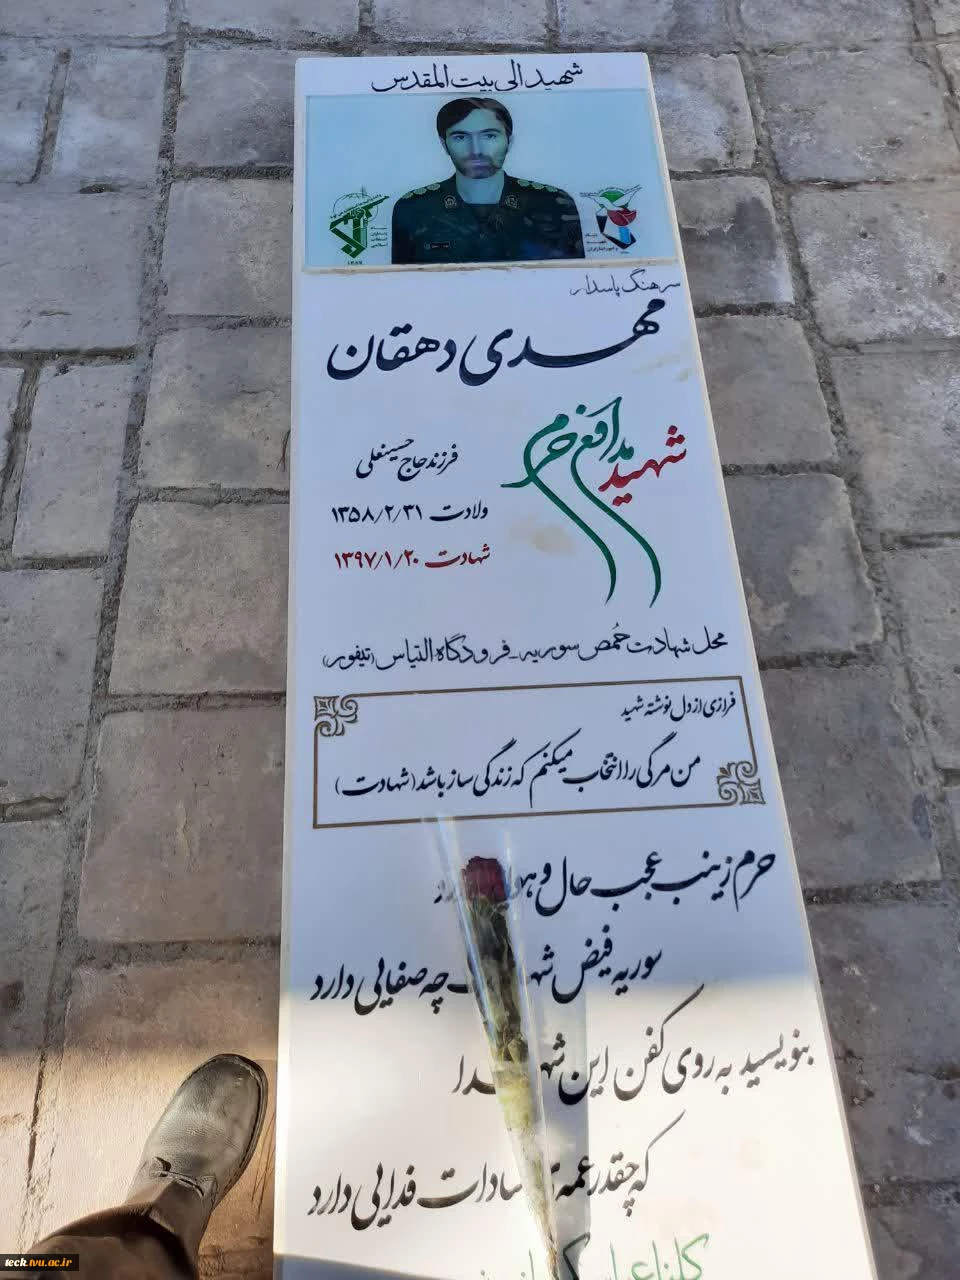 شهید الی بیت المقدس
سپاه
پاسداران
انقلاب
اسلامی
سرهنگ پاسدار
مهدی دهقان
شهید مدافع حرم
فرزند حاج حسینعلی
ولادت ۱۳۵۸/۲/۳۱
شهادت ۱۳۹۷/۱/۲۰
محل شهادت حُمص سوریه - فرودگاه التیاس (تیفور)
فرازی از دل نوشته شهید
من مرگی را انتخاب میکنم که زندگی ساز باشد (شهادت)
حرم زینب عجب حال و
سوریه فیض چه صفایی دارد
بنویسید به روی کفن این شهدا
که چقدر عمه سادات فدایی دارد
کلنا
teck.tvu.ac.ir